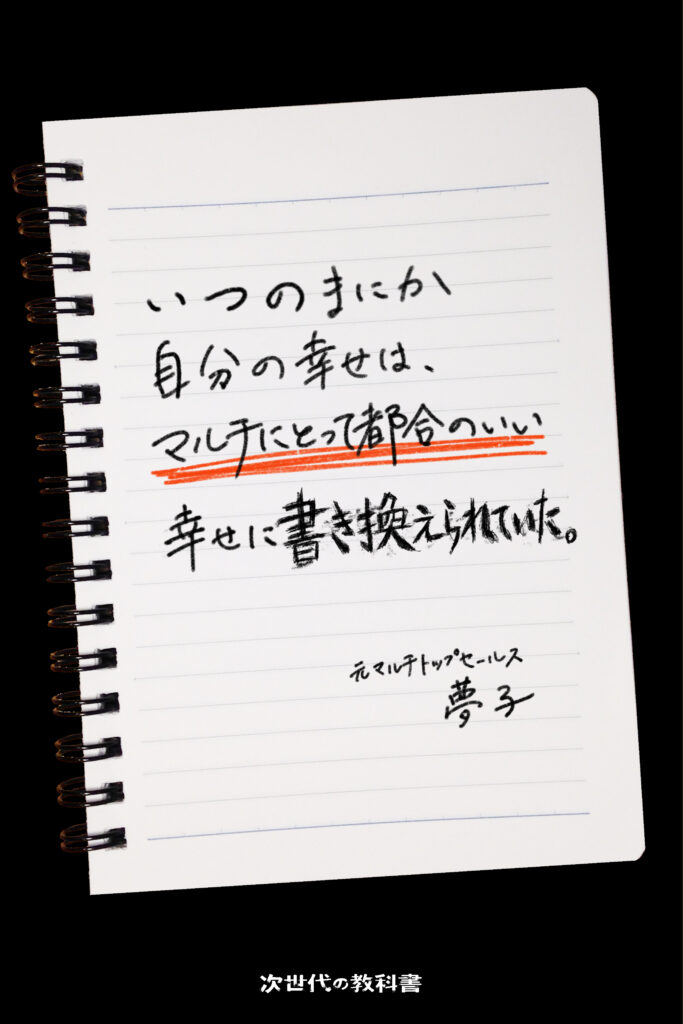 いつのまにか
自分の幸せは、
マルチにとって都合のいい
幸せに書き換えられていた。
元マルチトップセールス
夢子
次世代の教科書